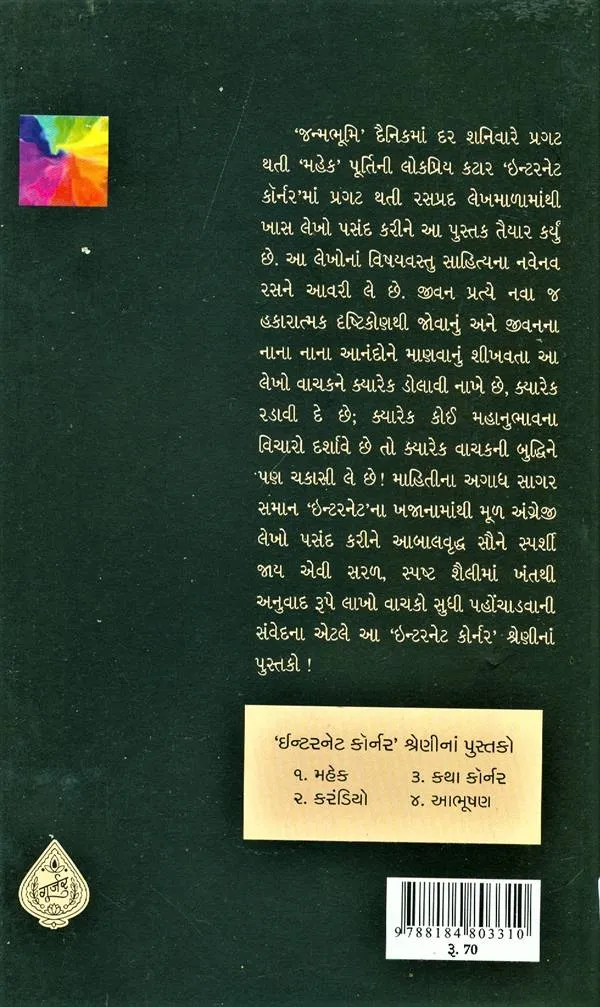 ‘જન્મભૂમિ’ દૈનિકમાં દર શનિવારે પ્રગટ
થતી ‘મહેક’ પૂર્તિની લોકપ્રિય કટાર ‘ઇન્ટરનેટ
કૉર્નર’માં પ્રગટ થતી રસપ્રદ લેખમાળામાંથી
ખાસ લેખો પસંદ કરીને આ પુસ્તક તૈયાર કર્યું
છે. આ લેખોનાં વિષયવસ્તુ સાહિત્યના નવેનવ
રસને આવરી લે છે. જીવન પ્રત્યે નવા જ
હકારાત્મક દૃષ્ટિકોણથી જોવાનું અને જીવનના
નાના નાના આનંદોને માણવાનું શીખવતા આ
લેખો વાચકને ક્યારેક ડોલાવી નાખે છે, ક્યારેક
રડાવી દે છે; ક્યારેક કોઈ મહાનુભાવના
વિચારો દર્શાવે છે તો ક્યારેક વાચકની બુદ્ધિને
પણ ચકાસી લે છે! માહિતીના અગાધ સાગર
સમાન ‘ઇન્ટરનેટ’ના ખજાનામાંથી મૂળ અંગ્રેજી
લેખો પસંદ કરીને આબાલવૃદ્ધ સૌને સ્પર્શી
જાય એવી સરળ, સ્પષ્ટ શૈલીમાં ખંતથી
અનુવાદ રૂપે લાખો વાચકો સુધી પહોંચાડવાની
સંવેદના એટલે આ ‘ઇન્ટરનેટ કોર્નર’ શ્રેણીનાં
પુસ્તકો !
‘ઈન્ટરનેટ કૉર્નર’ શ્રેણીનાં પુસ્તકો
૧. મહેક ૩. કથા કૉર્નર
૨. કરંડિયો ૪. આભૂષણ
ગૂર્જર
9 788184 803310
રૂ. 70